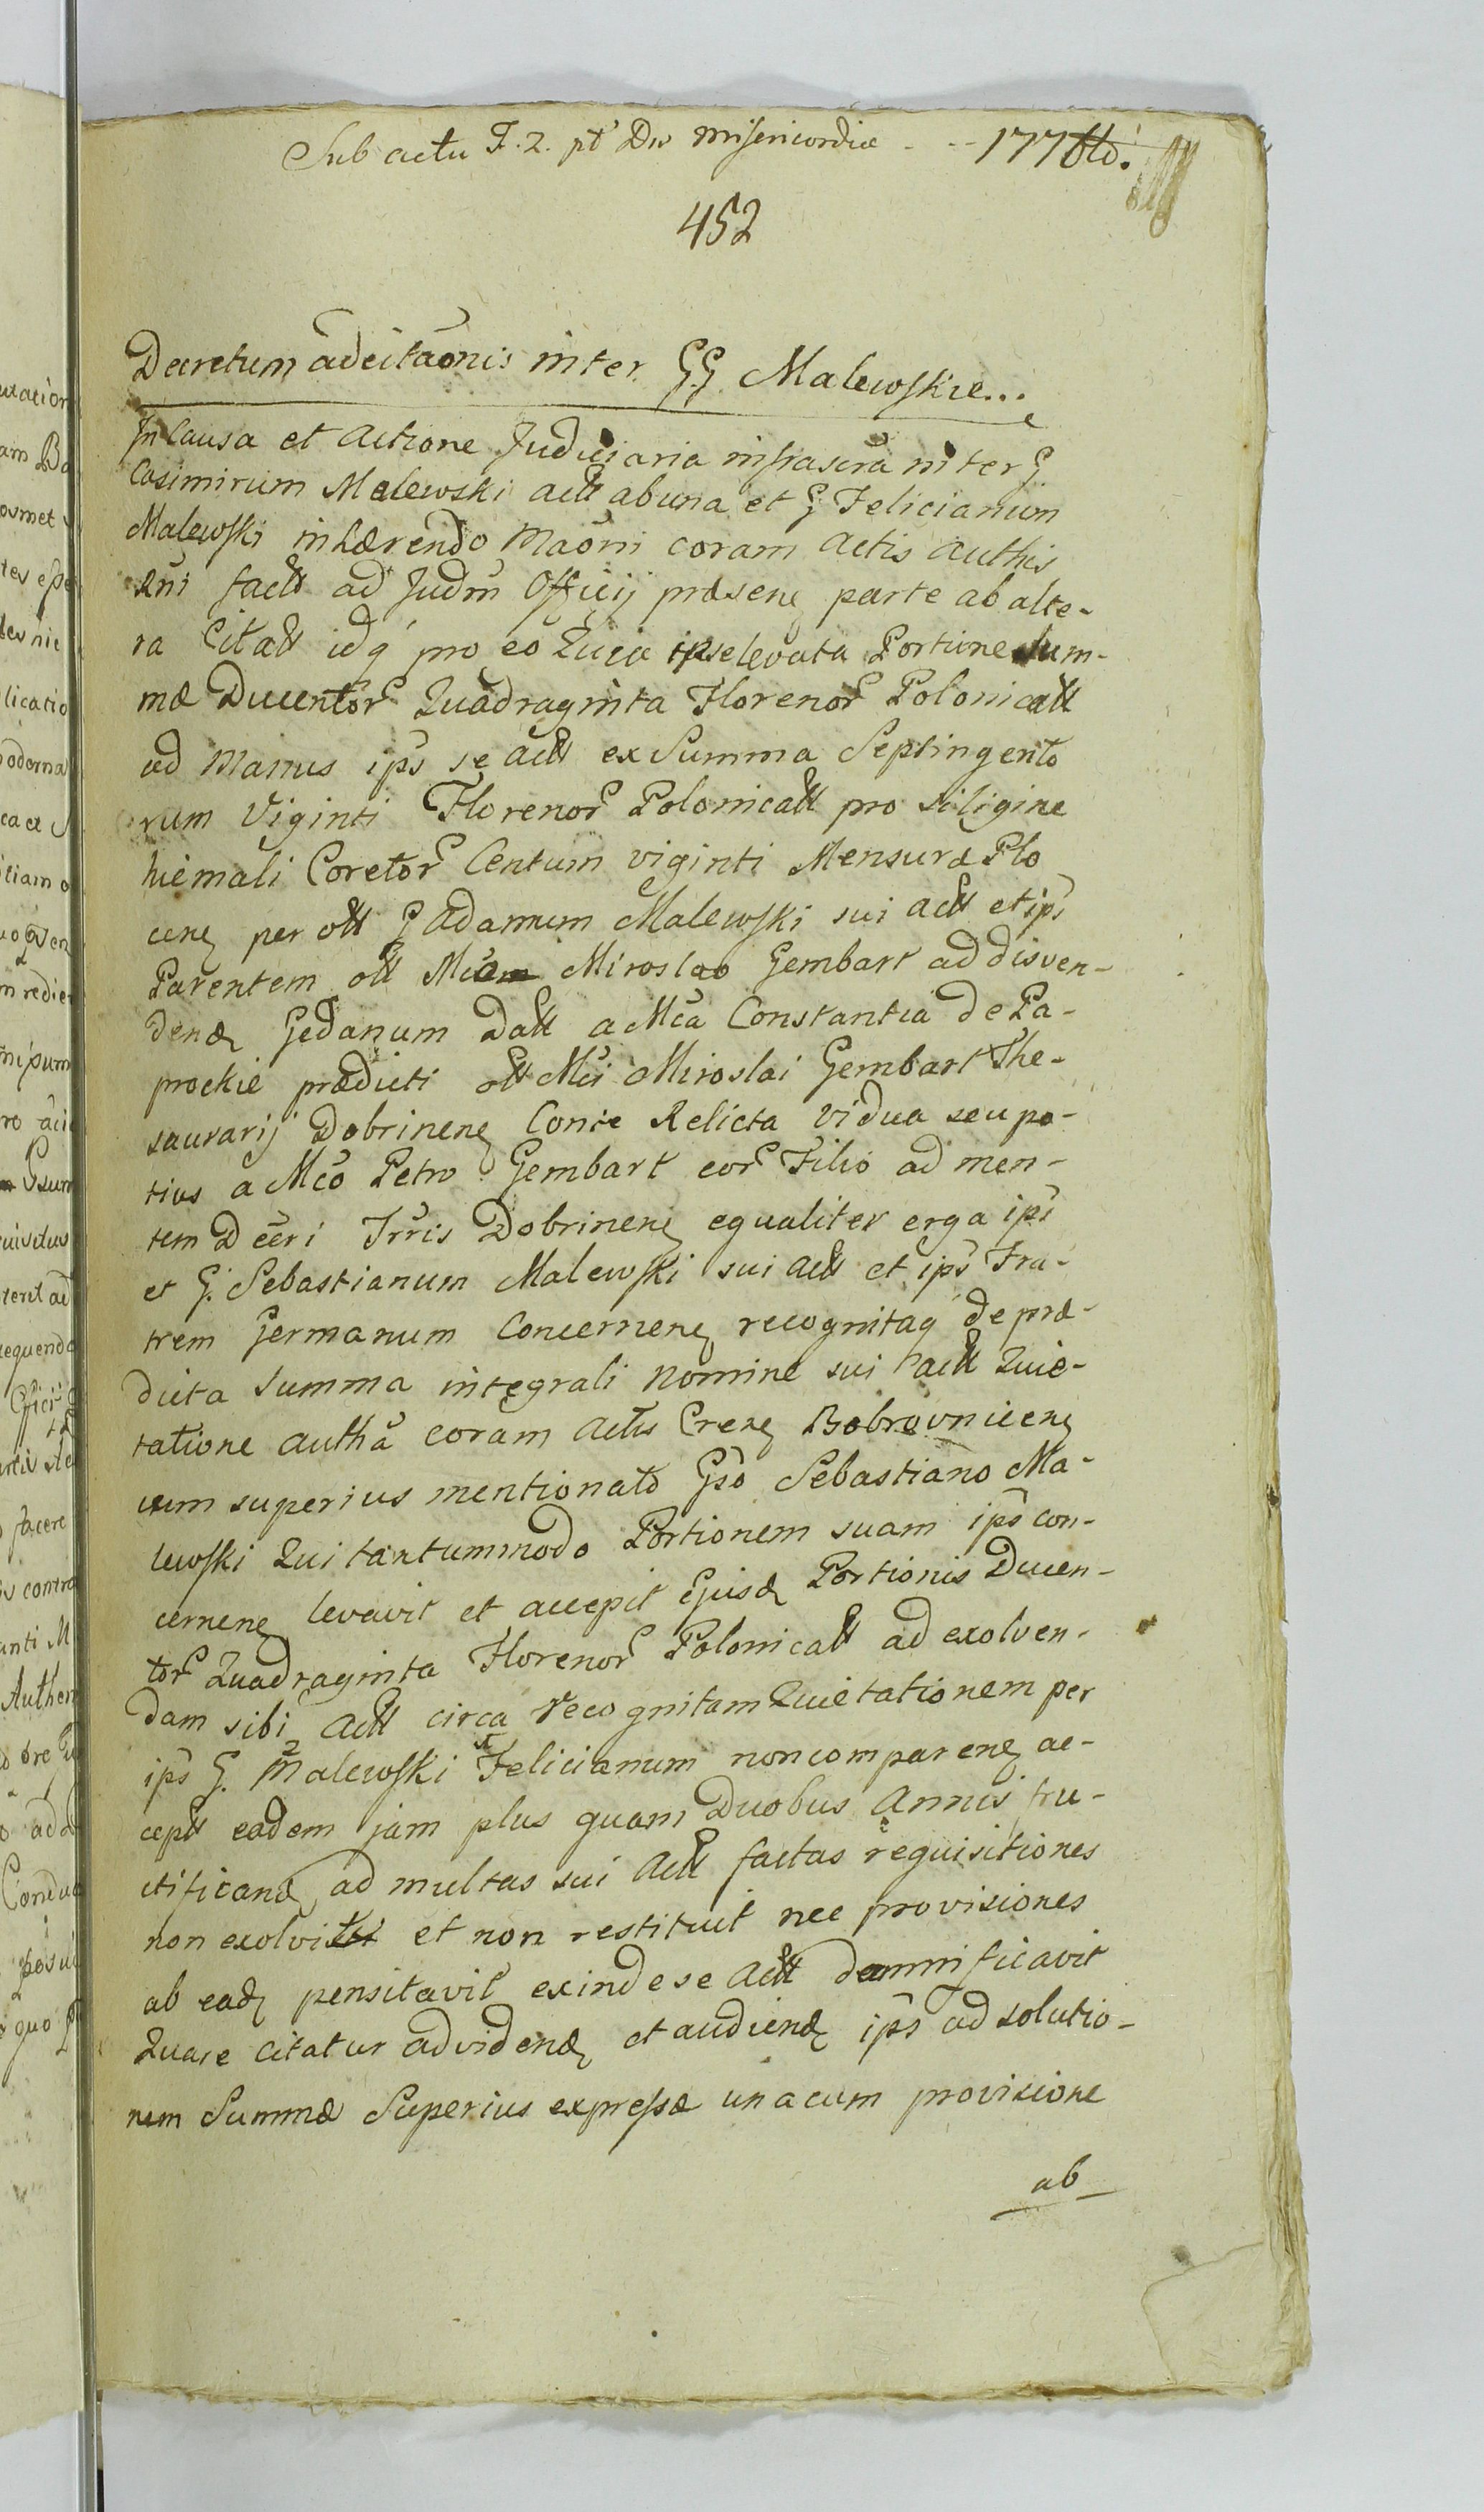 Sub actu F. 2. pt Dn Misericordiæ - - 177
452
Decretum adcitãonis inter GG Malewskie...
In Causa et Actione Judiciaria infrascrã inter G.
Casimirum Malewski actt ab una et G Felicianum
Malewski inhærendo Mãoni coram Actis Authis
factt ad Judm Officij præsenę parte ab alte-
ra Citatt idq pro eo Quia ipse levata Portione Sum-
mæ Ducentor Quadraginta Florenor Polonicatt
ad Manus ips se actt ex Summa Septingento
rum Viginti Florenor Polonicatt pro siligine
hiemali Coretor Centum viginti Mensuræ Plo
cenę per ott G Adamum Malewski sui actt et ips
Parentem ott Mirosłao Gembart ad disven-
dendę Gedanum Datt a Mcã Constantia de Pa-
prockie prædicti ott Mci Miroslai Gembart The-
saurarij Dobrinenę Conie Relicta Vidua seu po-
tius a Mco Petro Gembart eor Filio ad men-
tem Decri Irris Dobrinenę equaliter erga ips
et G. Sebastianum Malewski sui actt et ips Fra-
trem Germanum Concernenę recognitaq de præ-
dicta Summa integrali nomine sui actt Quie-
tatione authã coram Actis Crenę Bobrovnicenę
cum superius mentionato Gso Sebastiano Ma-
lewski Qui tantummodo Portionem suam ips con-
cernenę levavit et accepit Ejusdę Portionis Ducen-
tor Quadraginta Florenor Polonicatt ad exolven-
dam sibi actt circa recognitam Quietationem per
ips G. Malewski Felicianum non comparenę ac-
ceptt eadem jam plus quam Duobus Annis fru-
ctificandę ad multas sui actt factas requisitiones
non exolvit et non restituit nec provisiones
ab eadę pensitavit exinde se actt damnificavit
Quare citatur ad videndę et audiendę ips ad solutio-
nem Summæ Superius expressæ una cum provisione
ab